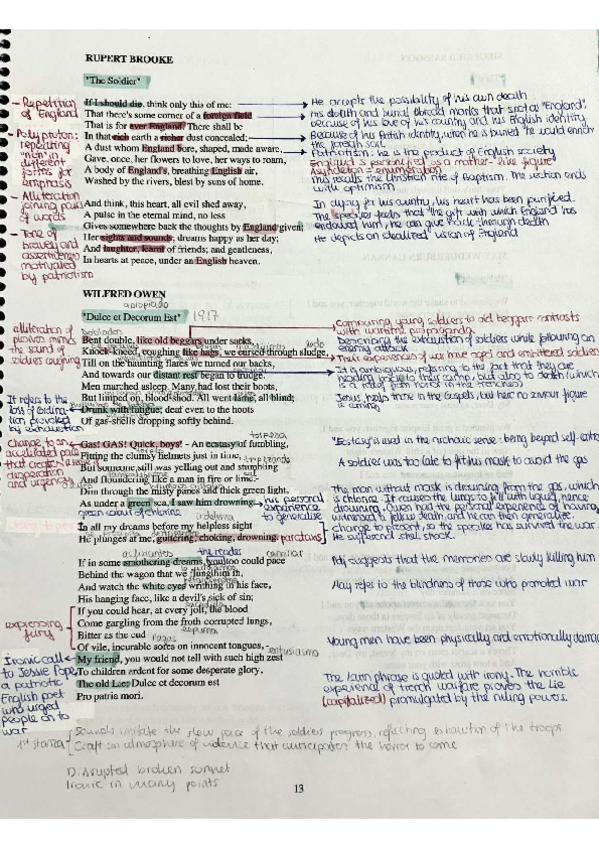 RUPERT BROOKE
"The Soldier"
If I should die, think only this of me:
That there's some corner of a foreign field
That is for ever England. There shall be
In that rich earth a richer dust concealed;
A dust whom England bore, shaped, made aware,
Gave, once, her flowers to love, her ways to roam,
A body of England's, breathing English air,
Washed by the rivers, blest by suns of home.
And think, this heart, all evil shed away,
A pulse in the eternal mind, no less
Gives somewhere back the thoughts by England given;
Her sights and sounds, dreams happy as her day;
And laughter, learnt of friends; and gentleness,
In hearts at peace, under an English heaven.
- Repetition
of England
- Polyptoton:
repeating
in different
forms for
emphasis
- Alliteration
joining pairs
of words
- Tone of
bravery and
assertiveness
motivated
by patriotism
He accepts the possibility of his own death
His death and burial abroad marks that spot as "England",
because of his love of his country and his English identity
Because of his British identity, when he is buried he would enrich
the foreign soil.
Patriotism: he is the product of English society
England is personified as a mother-like figure
Asyndeton = enumeration
This recalls the Christian rite of Baptism. The section ends
with optimism
In dying for his country, his heart has been purified.
The speaker feels that the gift with which England has
endowed him, he can give back through death
He depicts an idealized vision of England
WILFRED OWEN
apropiado
"Dulce et Decorum Est" 1917
doblados
Bent double, like old beggars under sacks,
Knock-kneed, coughing like hags, we cursed through sludge,
Till on the haunting flares we turned our backs,
And towards our distant rest began to trudge.
Men marched asleep. Many had lost their boots,
But limped on, blood-shod. All went lame; all blind;
Drunk with fatigue; deaf even to the hoots
Of gas-shells dropping softly behind.
Gas! GAS! Quick, boys! - An ecstasy of fumbling,
Fitting the clumsy helmets just in time,
But someone still was yelling out and stumbling
And floundering like a man in fire or lime.-
Dim through the misty panes and thick green light,
As under a green sea, I saw him drowning.
In all my dreams before my helpless sight
He plunges at me, guttering, choking, drowning.
If in some smothering dreams, you too could pace
Behind the wagon that we flung him in,
And watch the white eyes writhing in his face,
His hanging face, like a devil's sick of sin;
If you could hear, at every jolt, the blood
Come gargling from the froth corrupted lungs,
Bitter as the cud
Of vile, incurable sores on innocent tongues,
My friend, you would not tell with such high zest
To children ardent for some desperate glory,
The old Lie: Dulce et decorum est
Pro patria mori.
alliteration of
plosives mimics
the sound of
soldiers coughing
It refers to the
loss of
provoked
by exhaustion
change to an
accelerated pace
that creates
desperation
and urgency
expressing
fury
Ironic call
to Jessie Pope,
a patriotic
English poet
who urged
people on to
war
lodo
torpeza
tropezando
green colour of chlorine
his personal
experience
to generalise
the reader
caminar
espuma
entusiasmo
Comparing young soldiers to old beggars contrasts
with wartime propaganda
Describing the exhaustion of soldiers while following an
enemy attack
Their experiences of war have aged and embittered soldiers
It is ambiguous, referring to the fact that they are
heading to their camp, but also to death (which
is a relief from horrors in the trenches)
Jesus heals those in the Gospels, but here no saviour figure
is coming
"Ecstasy" is used in the archaic sense: being beyond self-control
A soldier was too late to fit his mask to avoid the gas
The man without mask is drowning from the gas, which
is chlorine. It causes the lungs to fill with liquid, hence
drowning. Owen had the personal experience of having
witnessed a fellow death, and he can then generalise.
change to present, so the speaker has survived the war.
He suffers of shell shock.
May suggests that the memories are slowly killing him
May refer to the blindness of those who promoted war
Young men have been physically and emotionally damaged
The Latin phrase is quoted with irony. The horrible
experience of trench warfare proves the Lie
(capitalized) promulgated by the ruling powers.
1st stanza Sounds imitate the slow pace of the soldiers progress, reflecting exhaustion of the troops
Craft an atmosphere of violence that anticipates the horror to come
Disrupted broken sonnet
Ironic in many points
13